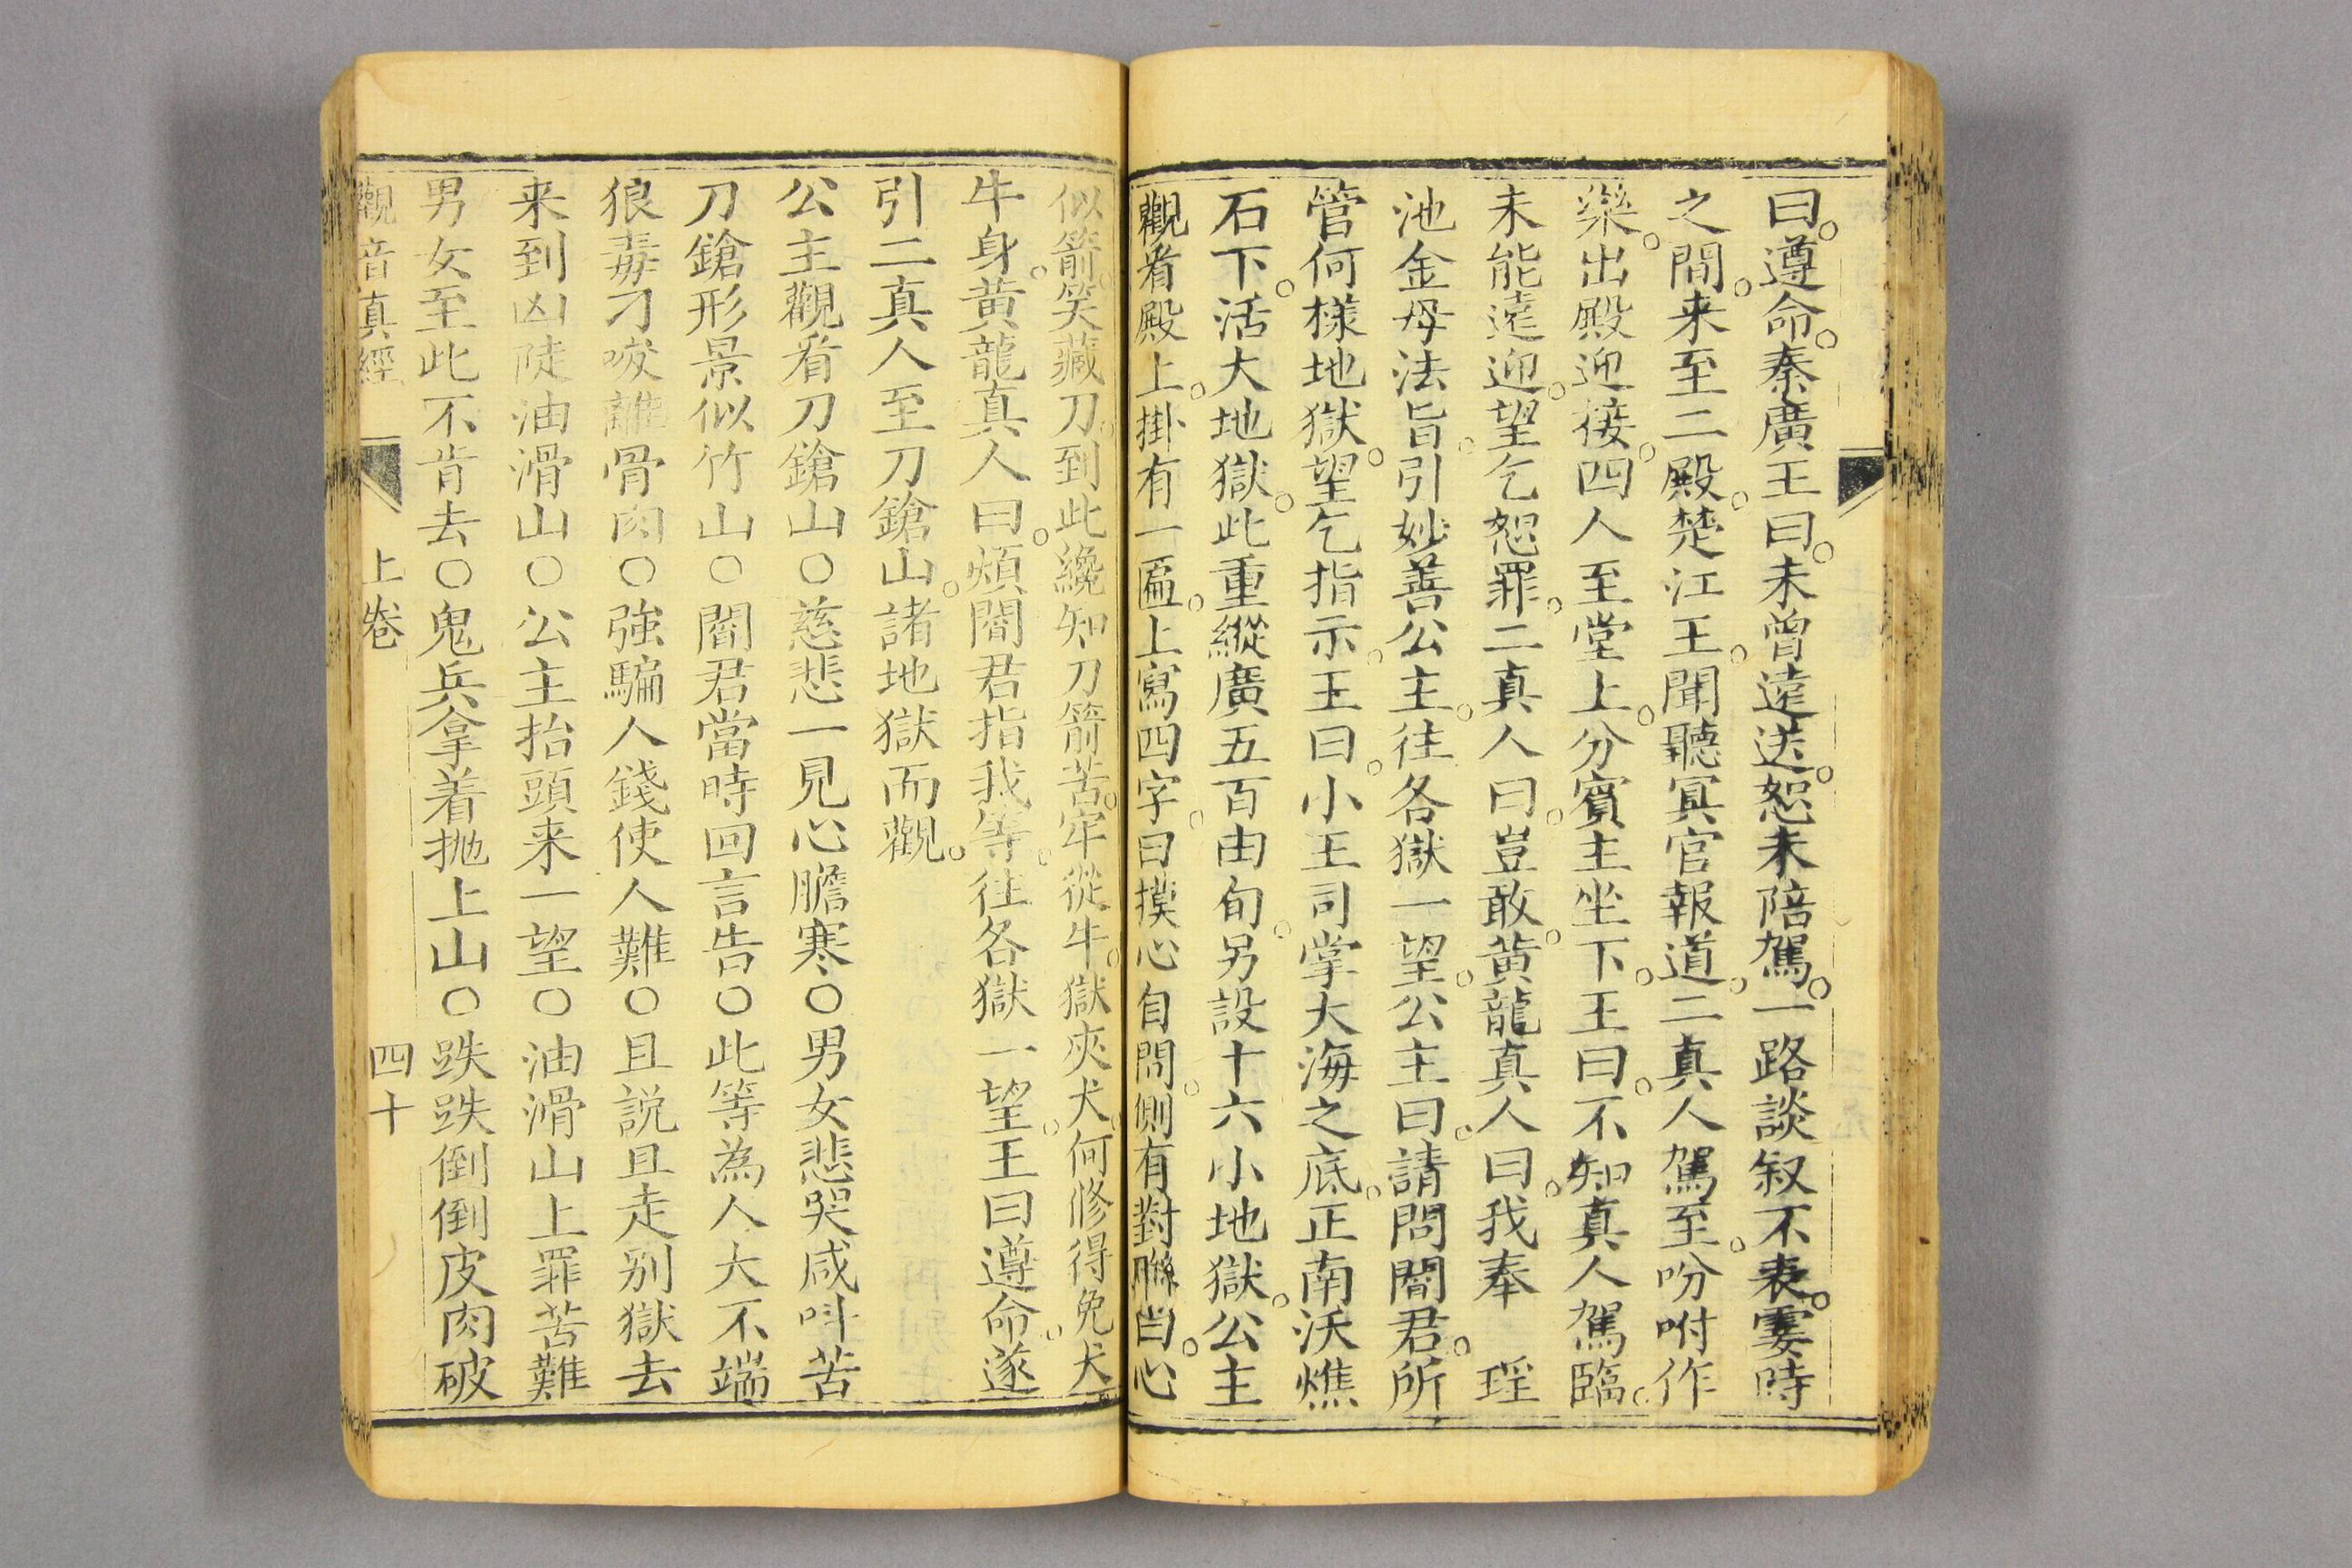 曰。遵命。秦廣王曰。未曾遠送。恕未陪駕。一路談叙不表。霎時
之間。来至二殿。楚江王。聞聽冥官報道。二真人駕至。吩咐作
樂。出殿迎接。四人至堂上。分賓主坐下。王曰。不知真人駕臨。
未能遠迎。望乞恕罪。二真人曰。豈敢。黄龍真人曰。我奉 瑶
池金母法旨。引妙善公主。往各獄一望。公主曰。請問閻君。所
管何様地獄。望乞指示。王曰。小王司掌大海之底。正南沃燋
石下。活大地獄。此重縱廣五百由旬。另設十六小地獄。公主
觀看殿上。掛有一匾。上寫四字。曰摸心自問。側有對聯曰。心
似箭。笑藏刀。到此纔知刀箭苦。牢從牛。獄夾犬。何修得免犬
牛身。黄龍真人曰。煩閻君指我等。往各獄一望。王曰遵命。遂
引二真人至刀鎗山。諸地獄而觀。
公主觀看刀鎗山〇慈悲一見心膽寒〇男女悲哭咸呌苦
刀鎗形景似竹山〇閻君當時回言告〇此等為人大不端
狼毒刁唆離骨肉〇強騙人錢使人難〇且説且走别獄去
来到凶陡油滑山〇公主抬頭来一望〇油滑山上罪苦難
男女至此不肯去〇鬼兵拿着抛上山〇跌跌倒倒皮肉破
觀音真經 上卷 四十